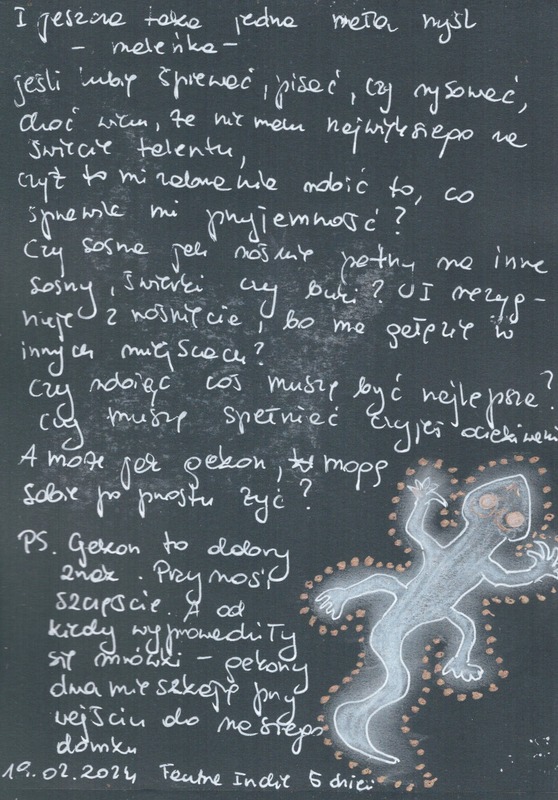 I jeszcze taka jedna mała myśl
- maleńka -
jeśli lubię śpiewać, pisać, czy rysować,
choć wiem, że nie mam największego na
świecie talentu,
czyż to mi zabrania robić to, co
sprawia mi przyjemność?
Czy sosna jak rośnie patrzy na inne
sosny, świerki czy buki? I rezyg-
nuje z rośnięcia, bo ma gałęzie w
innych miejscach?
Czy robiąc coś muszę być najlepsza?
Czy muszę spełniać czyjeś oczekiwania
A może jak gekon, mogę
sobie po prostu żyć?
PS. Gekon to dobry
znak. Przynosi
szczęście. A od
kiedy wyprowadziły
się mrówki - gekony
dwa mieszkają przy
wejściu do naszego
domku
19.02.2024 Indie 5 dzień